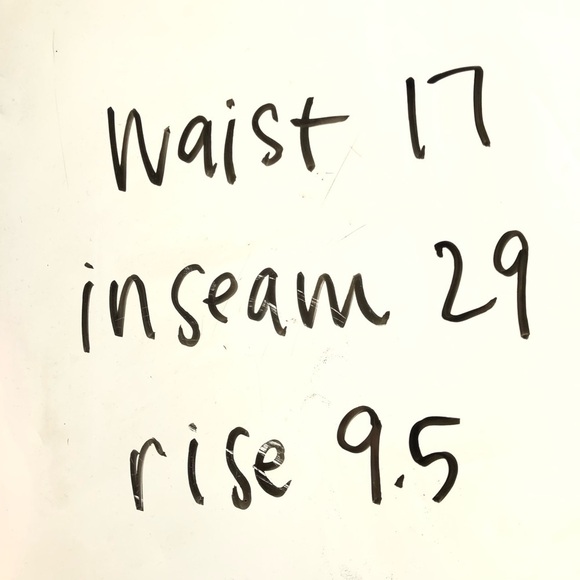 waist 17
inseam 29
rise 9.5